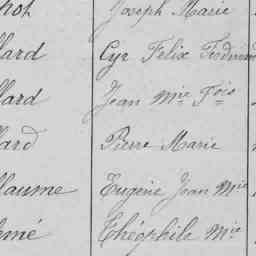 hot Joseph Marie
lard Cyr Felix Ferdinand
lard Jean Mie Fois
lard Pierre Marie
laume Eugène Jean Mie
mé Théophile Mie